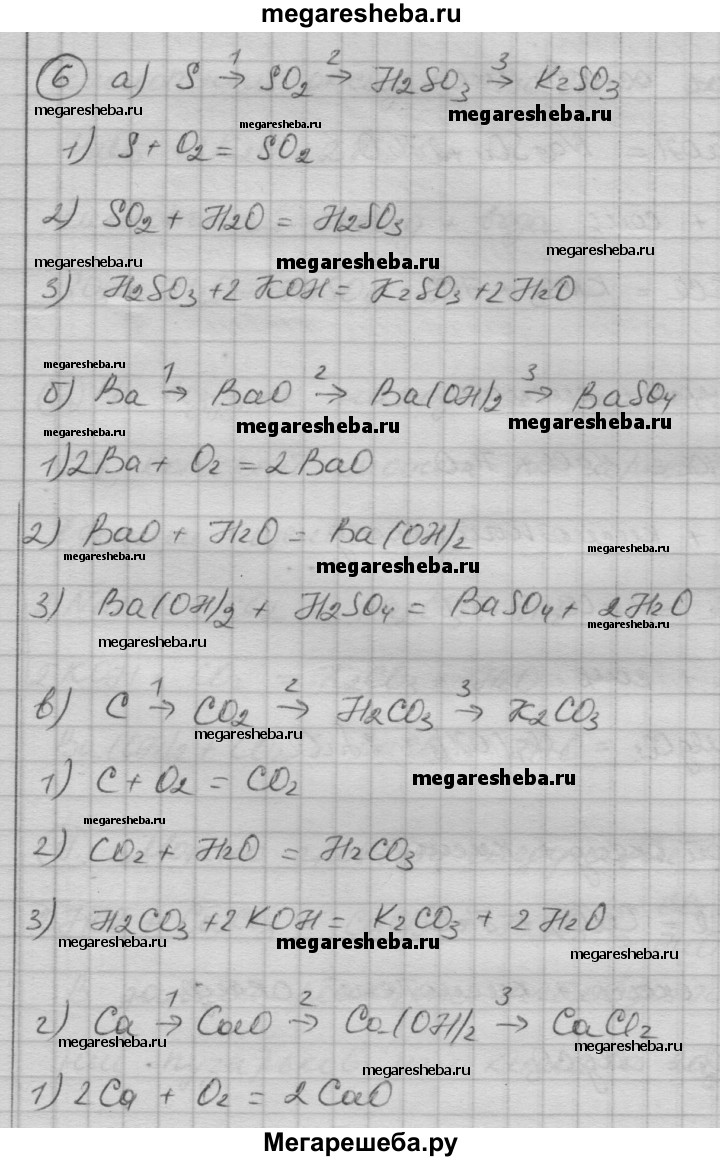 megaresheba.ru
6 а) S →1 SO2 →2 H2SO3 →3 K2SO3
megaresheba.ru megaresheba.ru megaresheba.ru
1) S + O2 = SO2
2) SO2 + H2O = H2SO3
megaresheba.ru megaresheba.ru megaresheba.ru
3) H2SO3 + 2 KOH = K2SO3 + 2 H2O
megaresheba.ru
б) Ba →1 BaO →2 Ba(OH)2 →3 BaSO4
megaresheba.ru megaresheba.ru megaresheba.ru
1) 2Ba + O2 = 2 BaO
2) BaO + H2O = Ba(OH)2
megaresheba.ru megaresheba.ru megaresheba.ru
3) Ba(OH)2 + H2SO4 = BaSO4 + 2H2O
megaresheba.ru megaresheba.ru
в) C →1 CO2 →2 H2CO3 →3 K2CO3
megaresheba.ru
1) C + O2 = CO2
megaresheba.ru
megaresheba.ru
2) CO2 + H2O = H2CO3
3) H2CO3 + 2 KOH = K2CO3 + 2 H2O
megaresheba.ru megaresheba.ru megaresheba.ru
г) Ca →1 CaO →2 Ca(OH)2 →3 CaCl2
megaresheba.ru megaresheba.ru
megaresheba.ru
1) 2 Ca + O2 = 2 CaO
Мегарешеба.ру